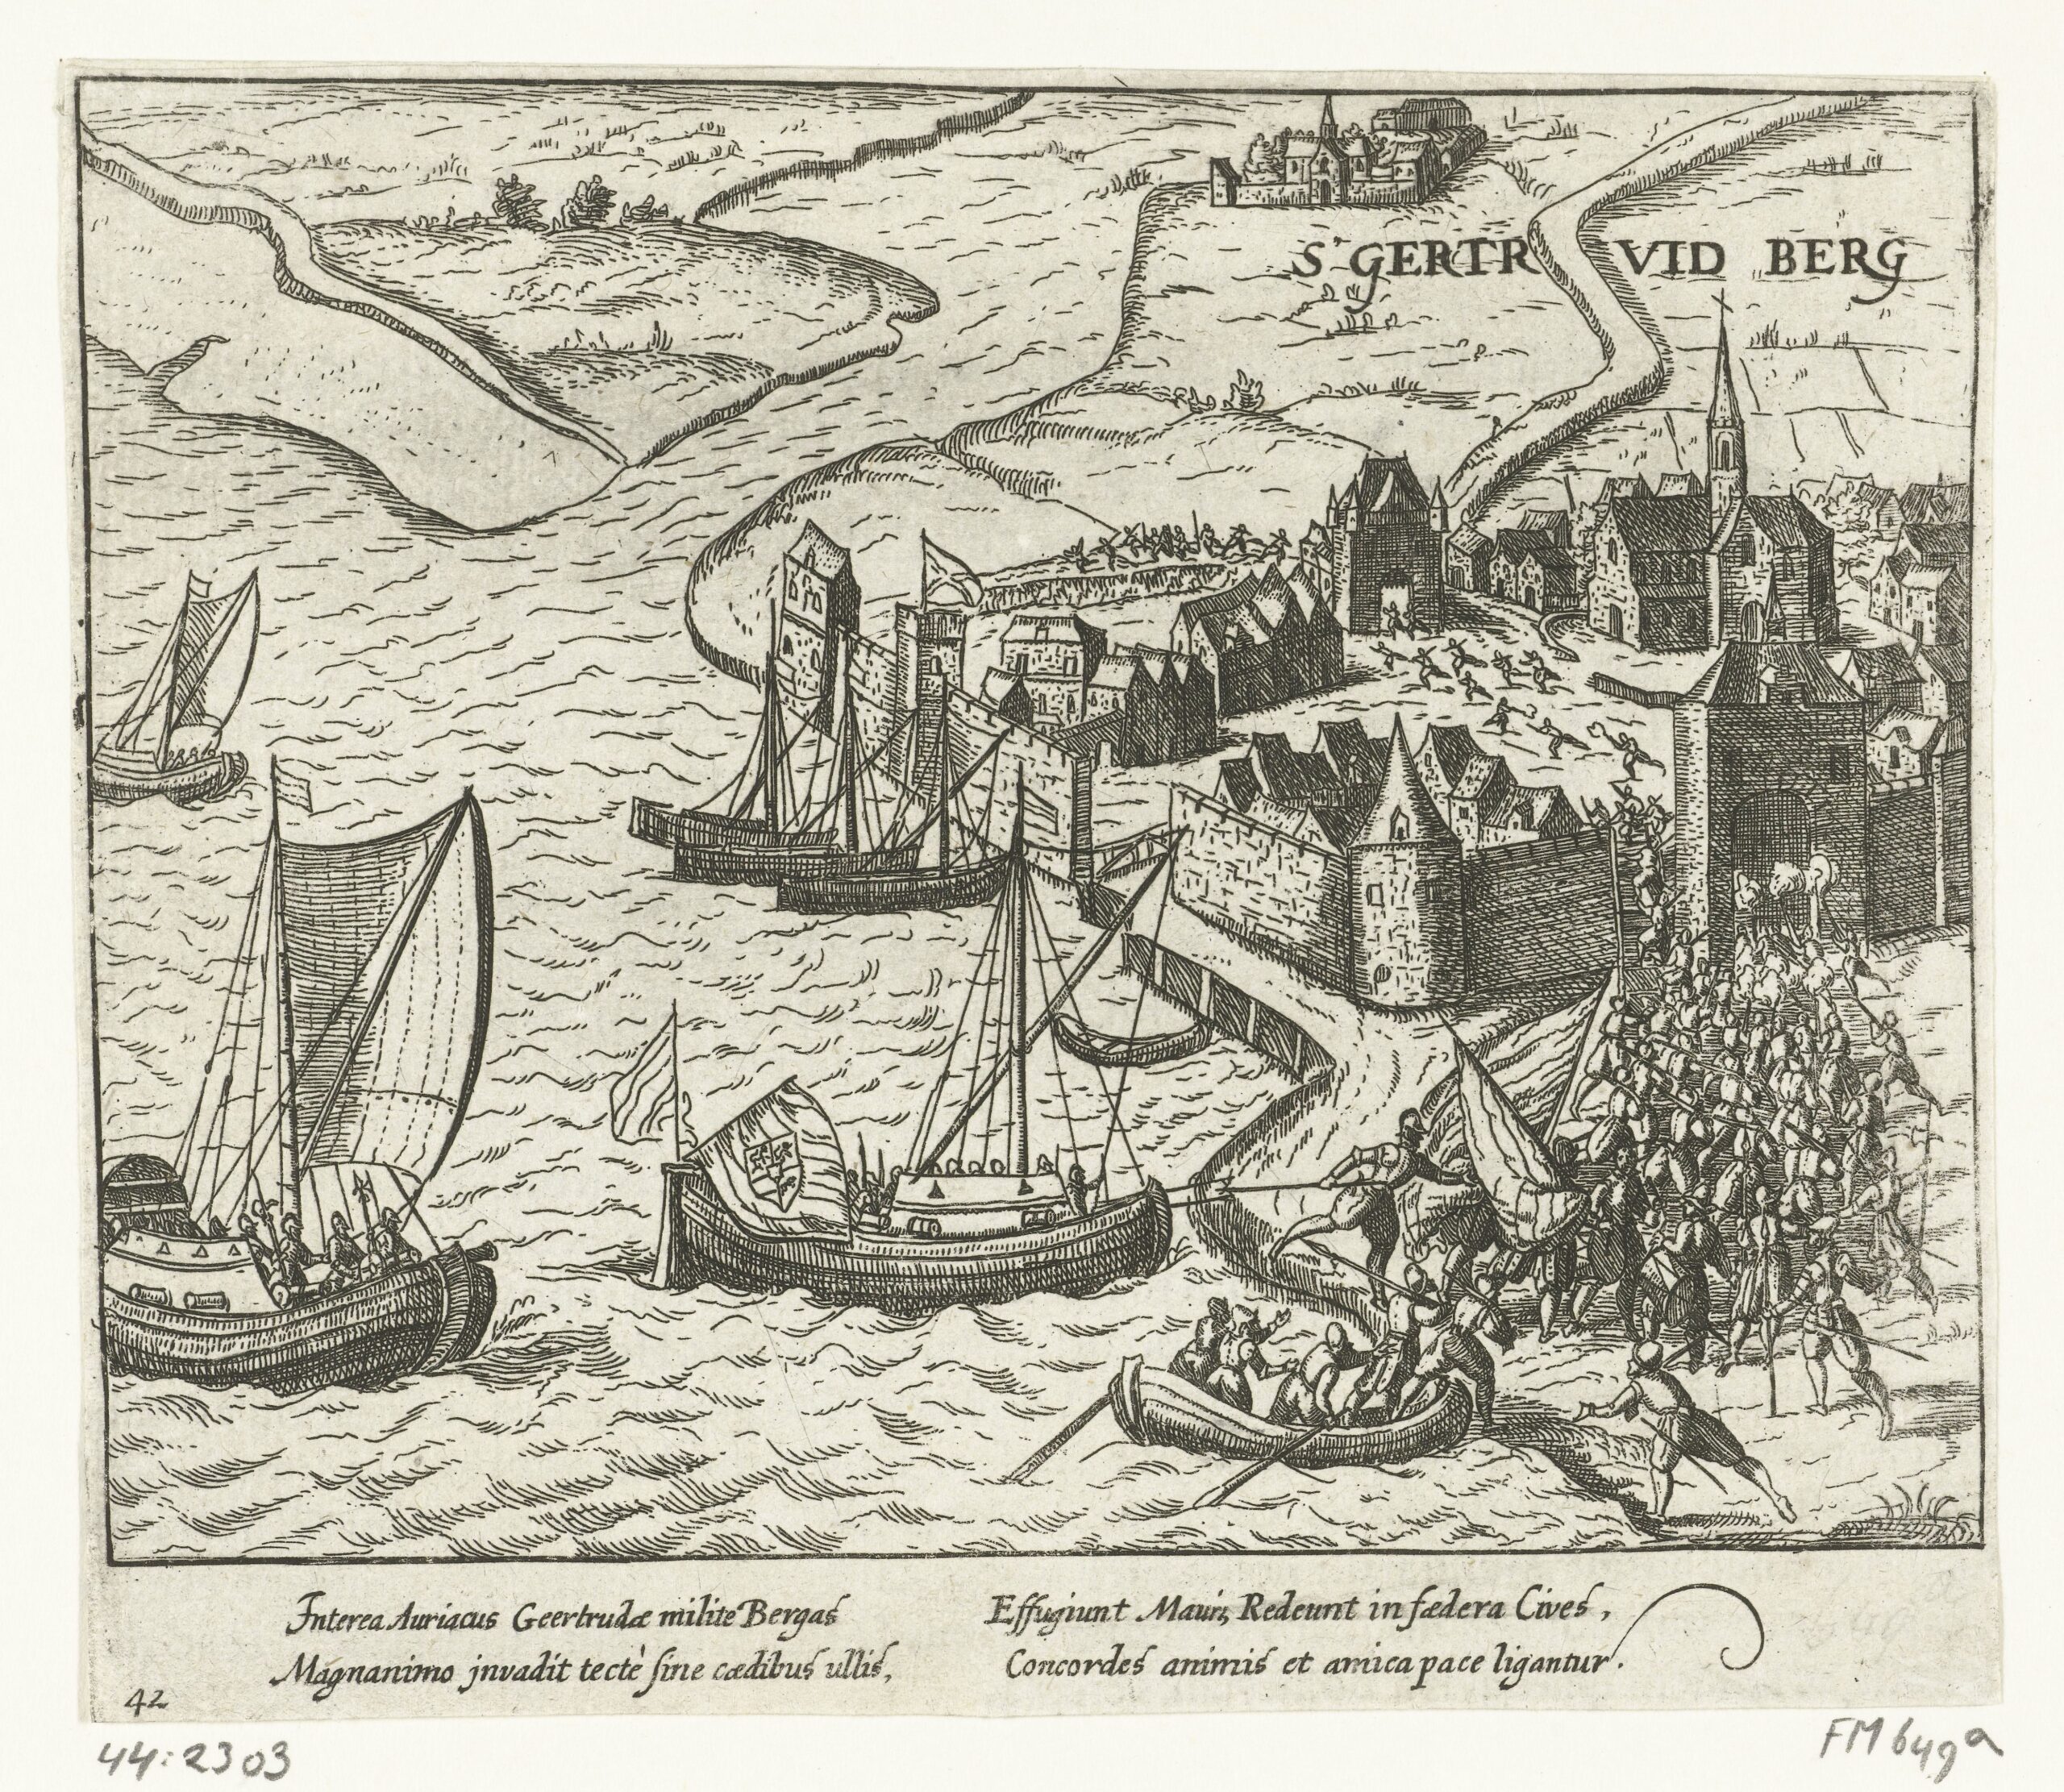 S' GERTRVID BERG
Interea Auriacus Geertrudæ milite Bergas
Magnanimo jnvadit tectè sine cædibus ullis,
Effugiunt Mauri, Redeunt in fædera Cives,
Concordes animis et amica pace ligantur.
42
44:2303
FM 649a